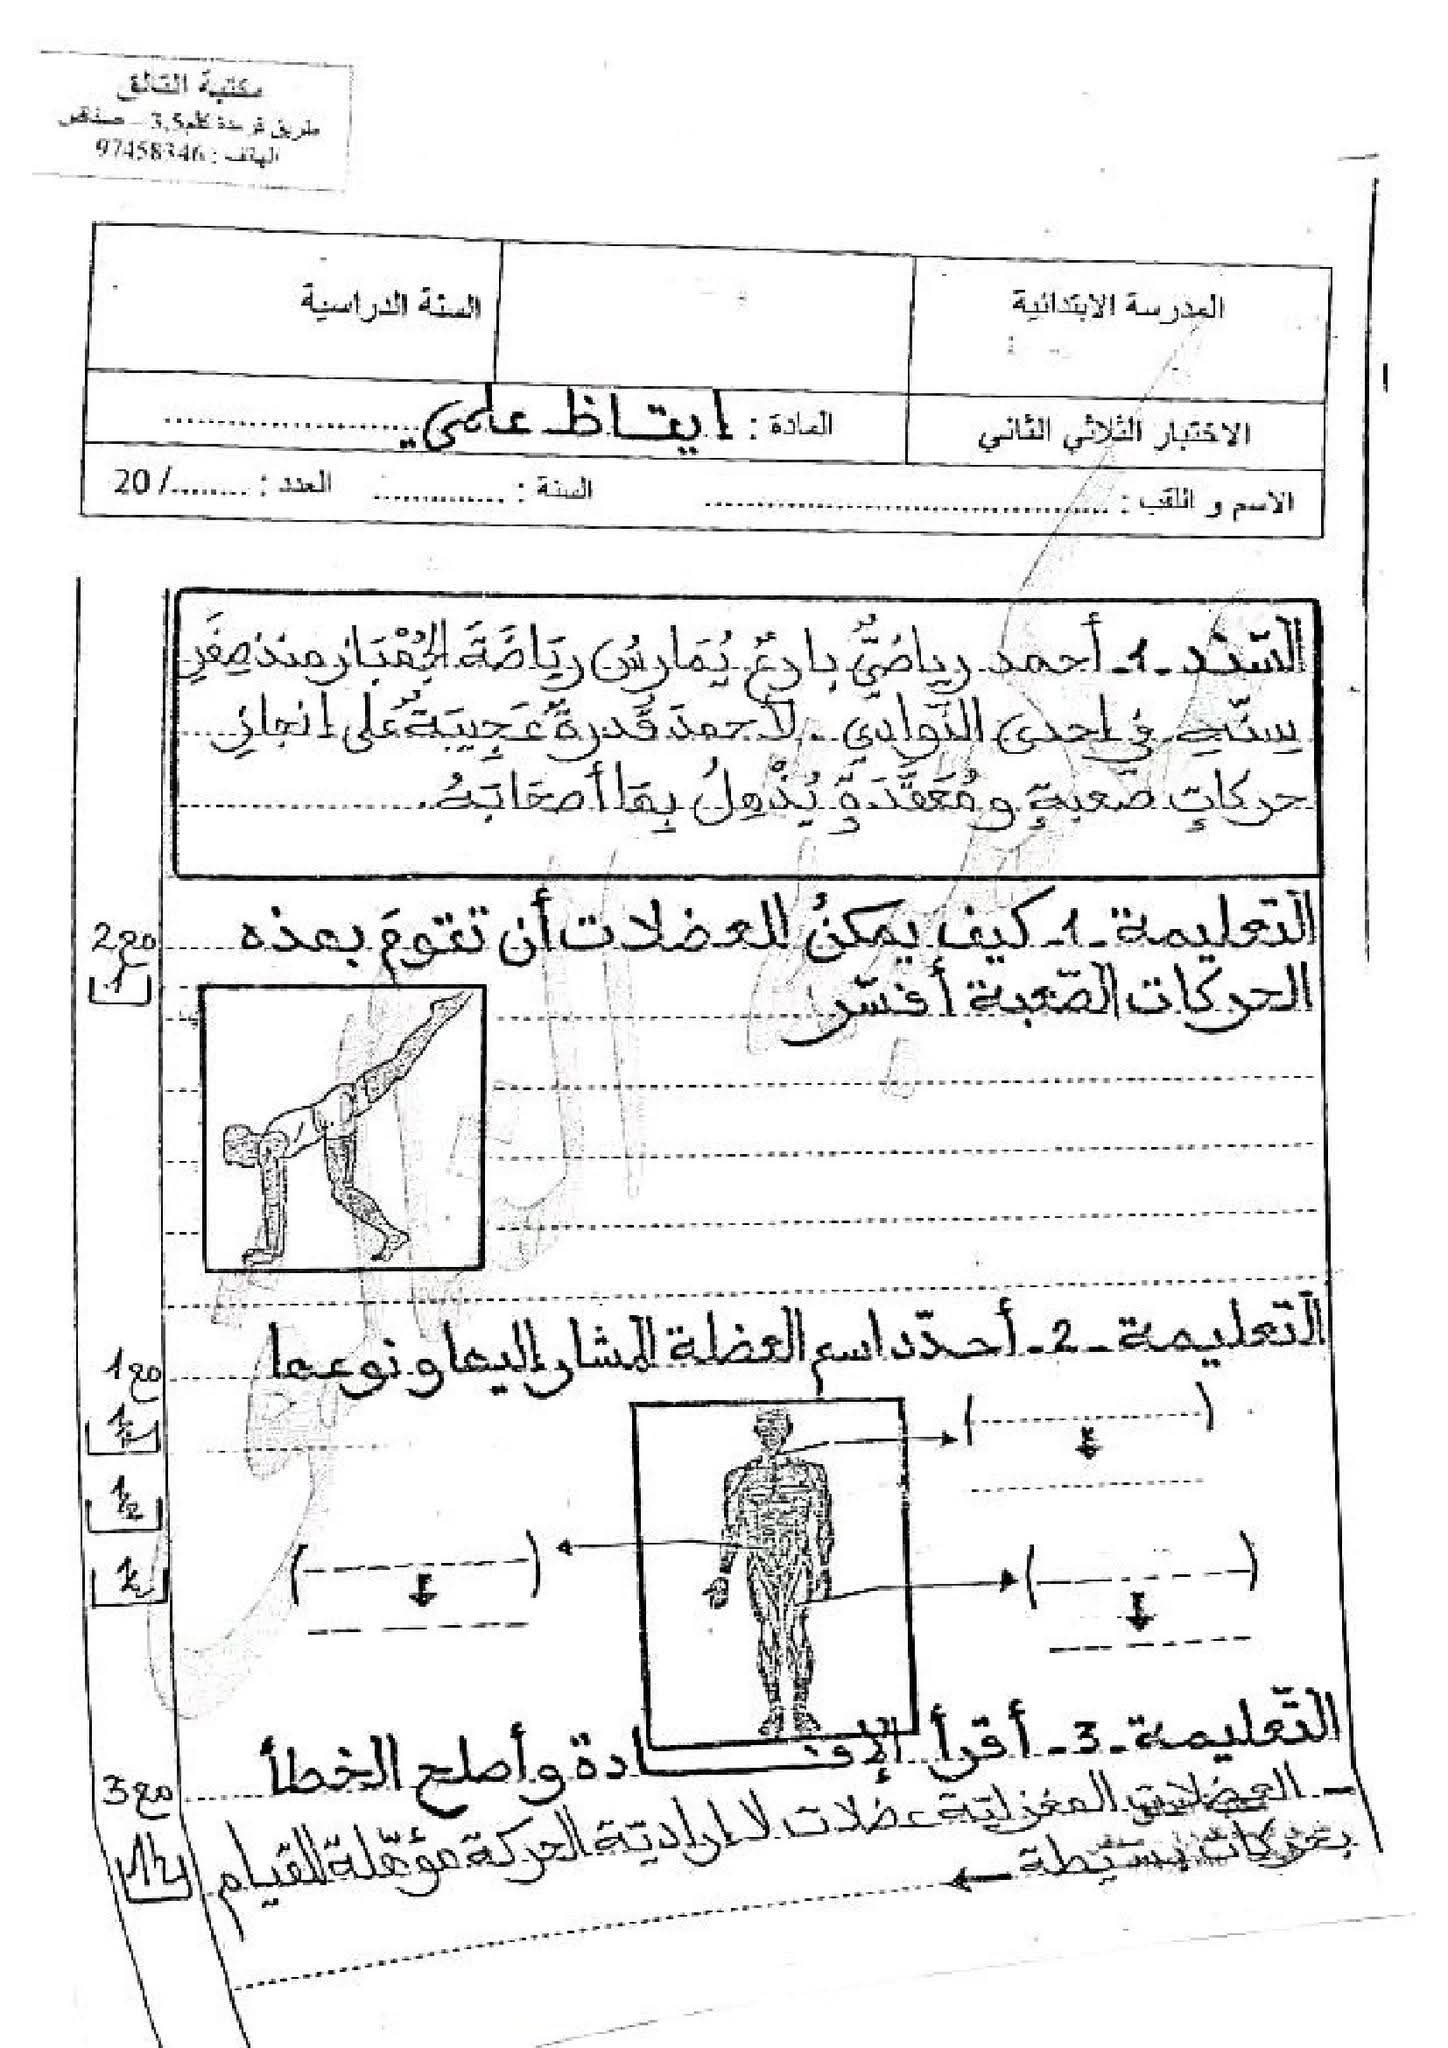 مكتبة التالق
طريق قرمدة كلم 3,5 - صفاقس
الهاتف : 97458346
المدرسة الابتدائية
السنة الدراسية
الاختبار الثلاثي الثاني
المادة : ايقاظ علمي
الاسم و اللقب : .......... السنة : .......... العدد : ......../ 20
السّند -1- أحمد رياضيٌّ بارعٌ يُمَارِسُ رِيَاضَةَ الجُمْبَاز منذ صِغَرِ
سِنّهِ في إحدى النّوادي . لأحمدَ قُدرةٌ عَجِيبَةٌ على انجازِ
حركاتٍ صَعبةٍ ومُعَقَّدَةٍ يُذْهِلُ بِهَا أصحَابَهُ.
التعليمة -1- كيف يمكنُ للعضلات أن تقومَ بهذه
الحركات الصّعبة أفسّر
مع2
1
التعليمة -2- أحدّد اسم العضلة المشار إليها و نوعها
مع1
التّعليمة -3- أقرأ الإفــادة وأصلح الخطأ
مع3
- العضلات المغزليّة عضلات لا إراديّة الحركة مؤهّلة للقيام
بحركات بسيطة